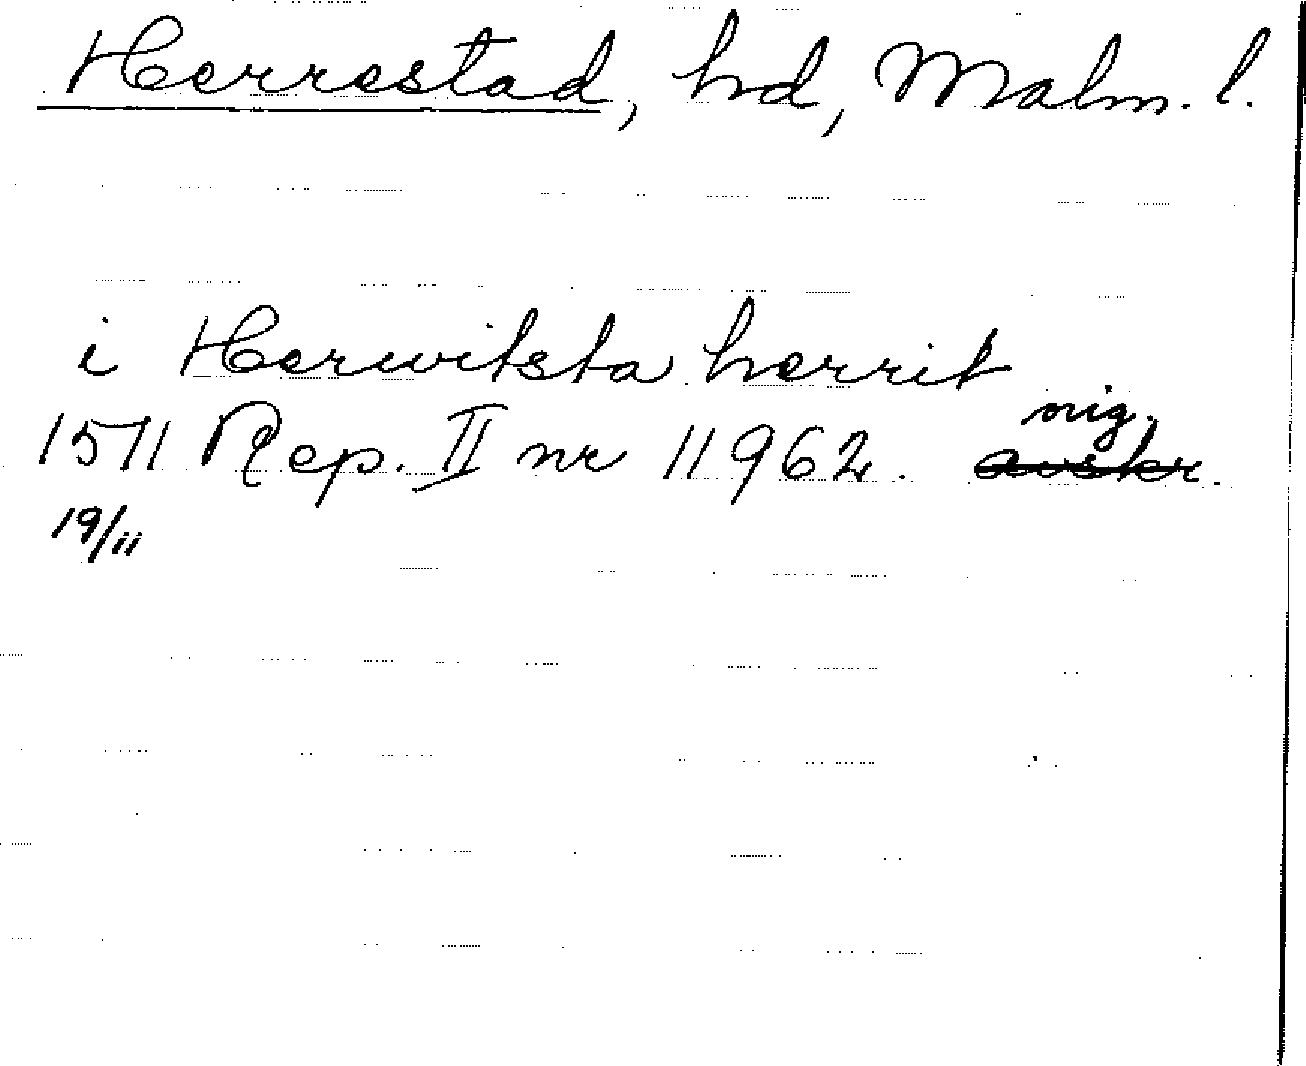 Herrestad, hd, Malm. l.
i Herwitsta herrit
1571 Rep. II nr 11962. avskr.
19/11